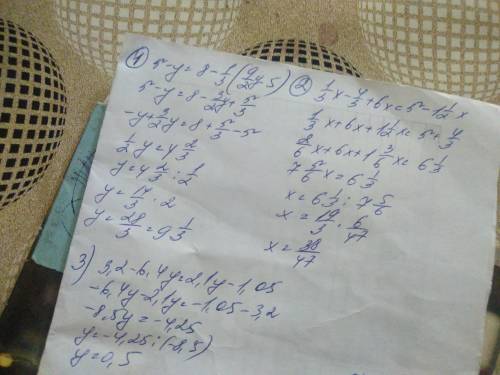 1) 5-y=8-1/3(9/2y-5)
5-y=8-3/2y+5/3
-y+3/2y=8+5/3-5
1/2y=4 2/3
y=4 2/3:1/2
y=14/3·2
y=28/3=9 1/3
2) 1/3x-4/3+6x=5-1 1/2x
1/3x+6x+1 1/2x=5+4/3
2/6x+6x+1 3/6x=6 1/3
7 5/6x=6 1/3
x=6 1/3:7 5/6
x=19/3·6/47
x=38/47
3) 3,2-6,4y=2,1y-1,05
-6,4y-2,1y=-1,05-3,2
-8,5y=-4,25
y=-4,25:(-8,5)
y=0,5